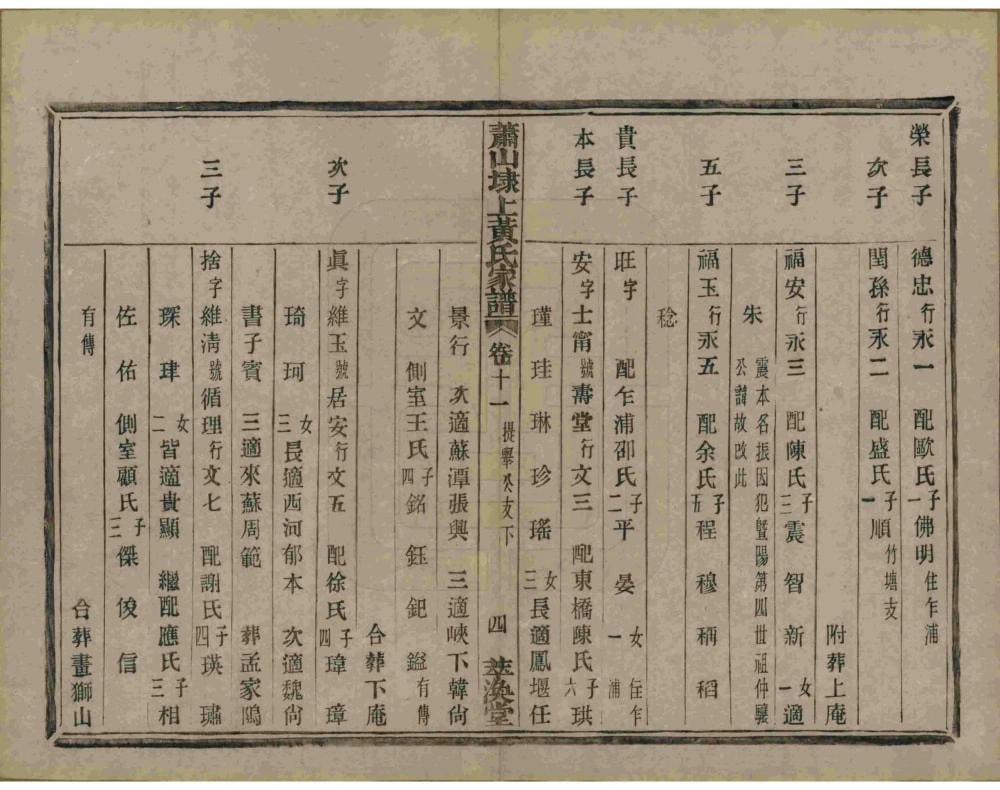 榮長子 德忠行永一 配歐氏子一佛明住乍浦
次子 閏孫行永二 配盛氏子一順竹塘支
附葬上庵
三子 福安行永三 配陳氏子三震 智 新女一適
朱震本名振因犯暨陽第四世祖仲驤公諱故改此
五子 福玉行永五 配余氏子五程 穆 稱 稻
稔
貴長子 旺字 配乍浦邵氏子二平 晏女一住乍浦
本長子 安字士甯號壽堂行文三 配東橋陳氏子六琪
瑾 珪 琳 珍 瑤女三長適鳳堰任
景行 次適蘇潭張興 三適峽下韓尙
文 側室王氏子四銘 鈺 鈀 鎰有傳
合葬下庵
次子 眞字維玉號居安行文五 配徐氏子四瑋 璋
琦 珂女三長適西河郁本 次適魏尙
書子賓 三適來蘇周範 葬孟家隝
三子 捨字維淸號循理行文七 配謝氏子四瑛 璛
琛 珒女二皆適貴顯 繼配應氏子三相
佐 佑 側室顧氏子三傑 俊 信
有傳 合葬畫獅山
蕭山埭上黃氏家譜 卷十一 提舉癸支下 四 萃渙堂